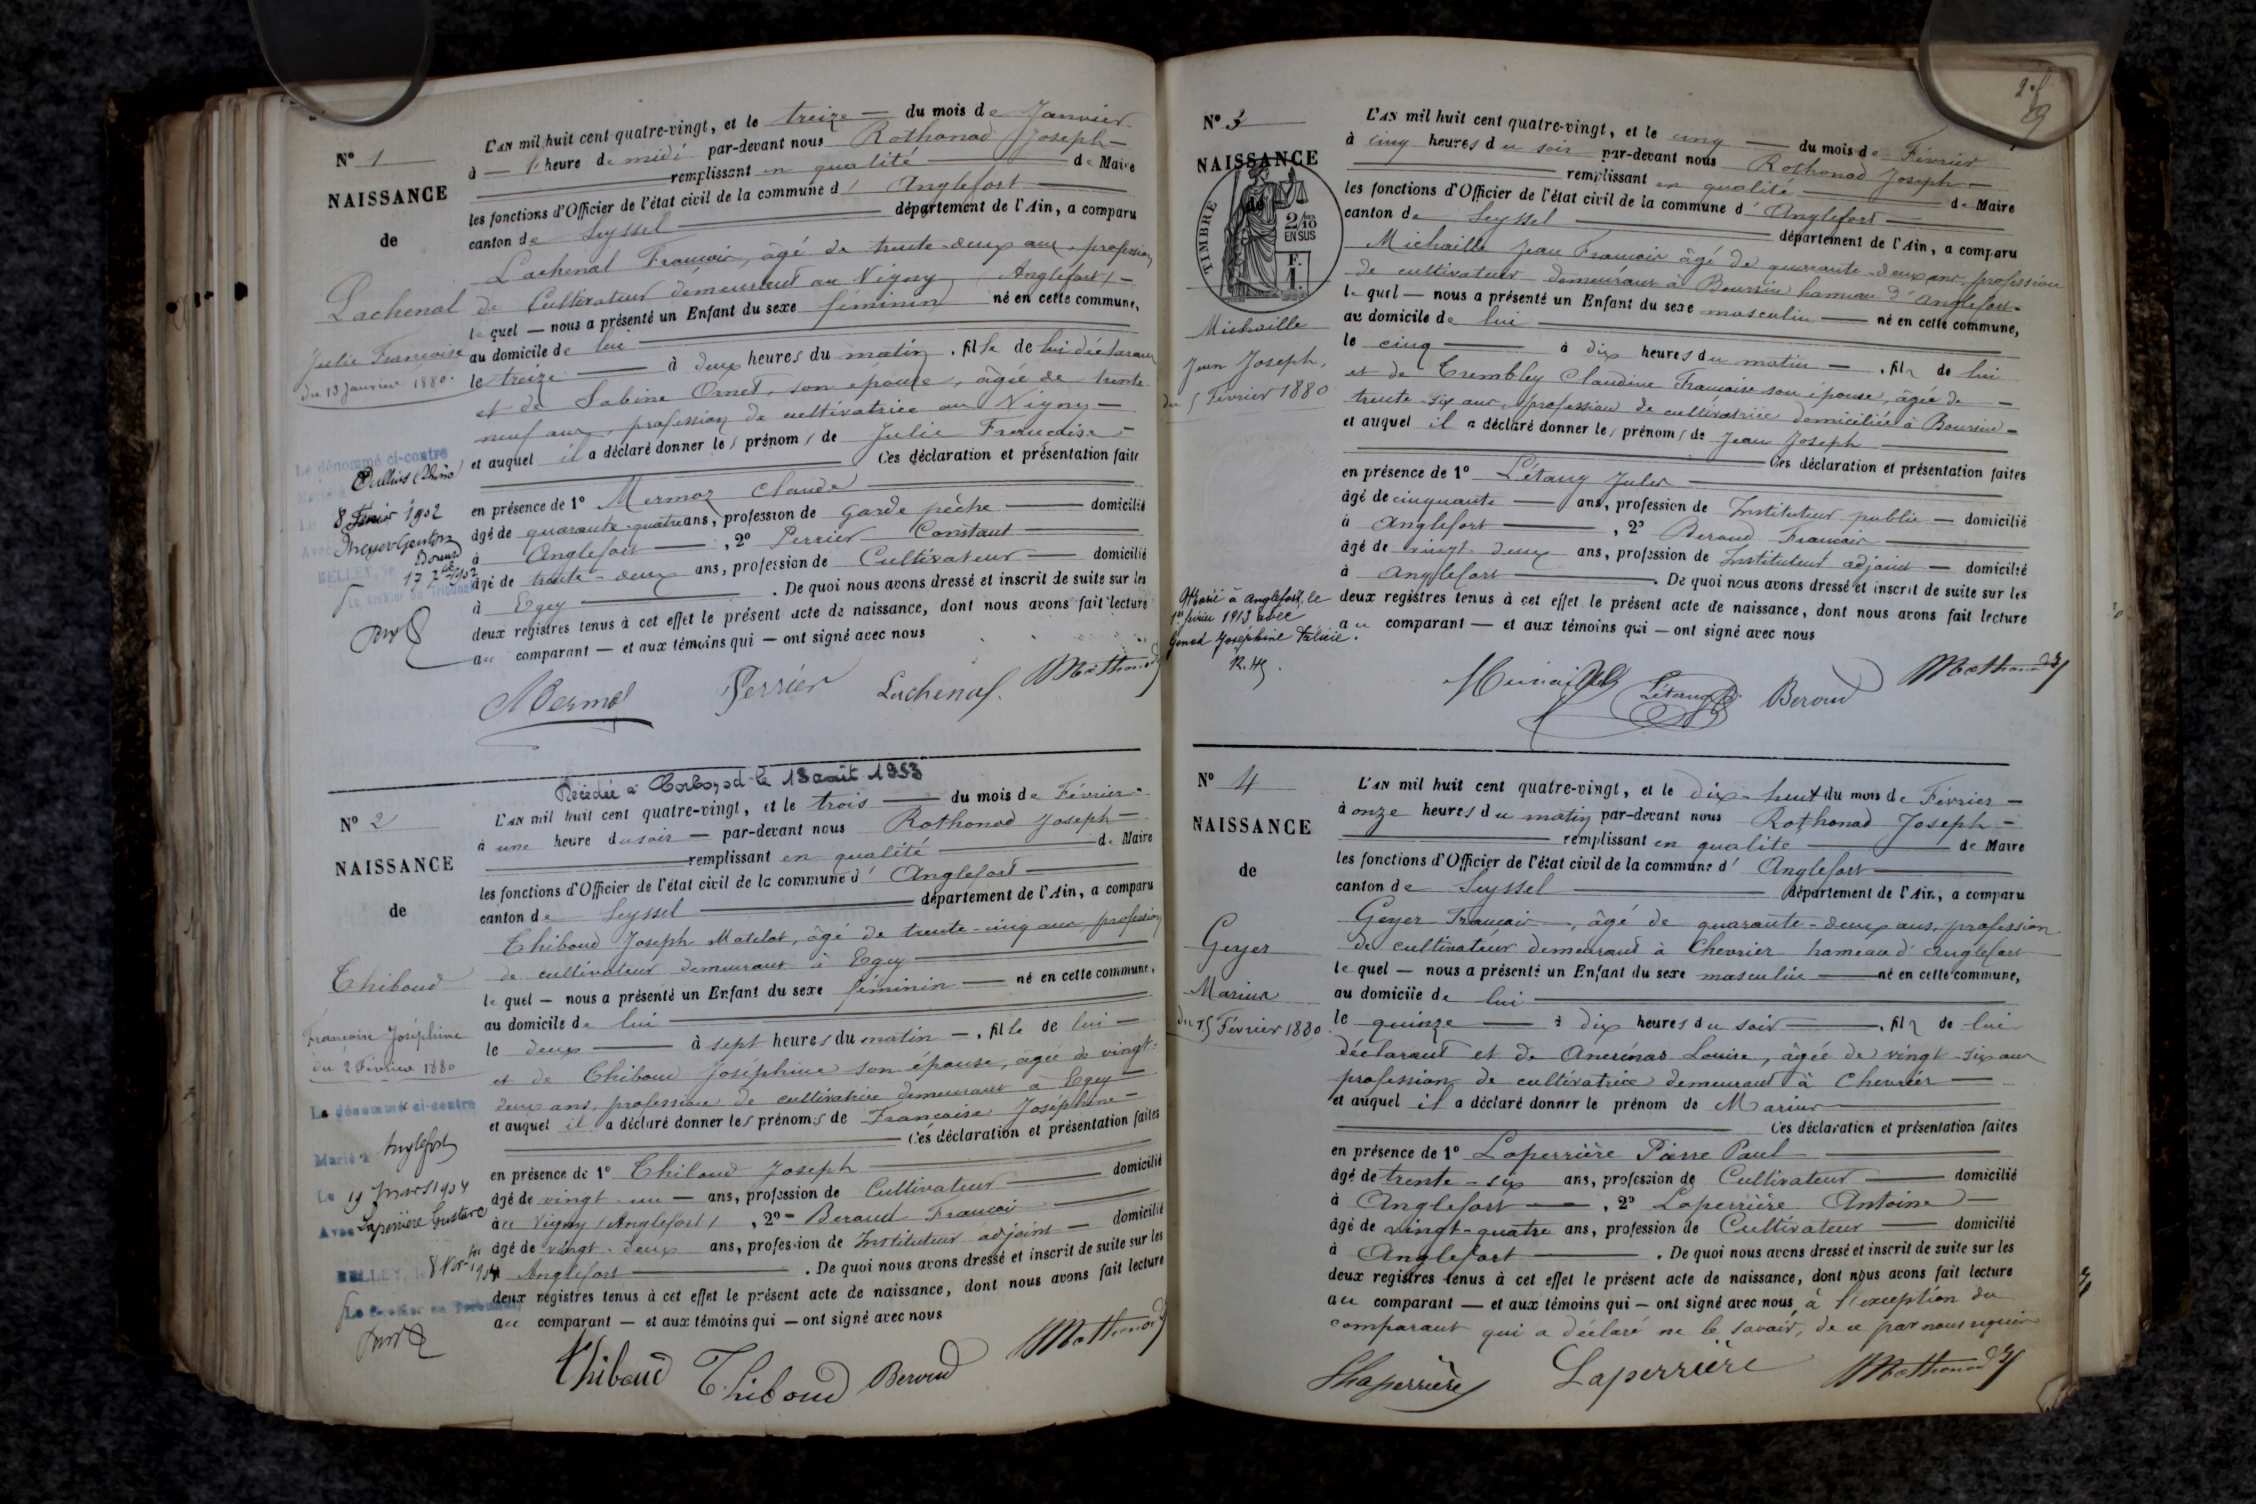 N° 1
NAISSANCE
de
Lachenal
Julie Francoise
du 13 Janvier 1880.
Le dénommé ci-contre
Oullins (Rhône)
Le 8 Février 1902
Avec
BELLEY, le 17 7bre 1902
Le Greffier du Tribunal
L'AN mil huit cent quatre-vingt, et le treize — du mois de Janvier
à — 1 heure de midi par-devant nous Rothonod Joseph —
remplissant en qualité — de Maire
les fonctions d'Officier de l'état civil de la commune d' Anglefort —
canton de Seyssel — département de l'Ain, a comparu
Lachenal François, âgé de trente-deux ans, profession
de Cultivateur demeurant au Vigny (Anglefort) —
lequel — nous a présenté un Enfant du sexe féminin né en cette commune,
au domicile de lui —
le treize — à deux heures du matin, fille de lui déclarant
et de Sabine Ornet, son épouse, âgée de trente
neuf ans, profession de cultivatrice au Vigny —
et auquel il a déclaré donner les prénoms de Julie Francoise —
Ces déclaration et présentation faite
en présence de 1° Mermoz Claude —
âgé de quarante-quatre ans, profession de garde pèche — domicilié
à Anglefort —, 2° Perrier Constant —
âgé de trente-deux ans, profession de Cultivateur — domicilié
à Egey — . De quoi nous avons dressé et inscrit de suite sur les
deux registres tenus à cet effet le présent acte de naissance, dont nous avons fait lecture
au comparant — et aux témoins qui — ont signé avec nous
Mermoz Perrier Lachenal Rothonod
Décédée à Corbonod le 13 août 1953
N° 2
NAISSANCE
de
Thiboud
Francoise Joséphine
du 2 Février 1880
Le dénommé ci-contre
Marié à Anglefort
Le 19 Mars 1904
Avec Laperrière Gustave
BELLEY, le 8 Nov. 1904
Le Greffier du Tribunal
L'AN mil huit cent quatre-vingt, et le trois — du mois de Février —
à une heure du soir — par-devant nous Rothonod Joseph —
remplissant en qualité — de Maire
les fonctions d'Officier de l'état civil de la commune d' Anglefort —
canton de Seyssel — département de l'Ain, a comparu
Thiboud Joseph Matelot, âgé de trente-cinq ans, profession
de cultivateur demeurant à Egey —
lequel — nous a présenté un Enfant du sexe féminin — né en cette commune,
au domicile de lui —
le deux — à sept heures du matin —, fille de lui —
et de Thiboud Joséphine son épouse, âgée de vingt-
deux ans, profession de cultivatrice demeurant à Egey —
et auquel il a déclaré donner les prénoms de Francoise Joséphine —
Ces déclaration et présentation faites
en présence de 1° Thiboud Joseph —
âgé de vingt-un — ans, profession de Cultivateur — domicilié
à au Vigny (Anglefort), 2° — Beroud François —
âgé de vingt-deux ans, profession de Instituteur adjoint — domicilié
à Anglefort — . De quoi nous avons dressé et inscrit de suite sur les
deux registres tenus à cet effet le présent acte de naissance, dont nous avons fait lecture
au comparant — et aux témoins qui — ont signé avec nous
Thiboud Thiboud Beroud Rothonod
N° 3
NAISSANCE
de
TIMBRE
2/10
EN SUS
F.
1.
Michaille
Jean Joseph,
du 5 Février 1880
Marié à Anglefort, le
1er février 1913 avec
Genod Joséphine Félicie.
L'AN mil huit cent quatre-vingt, et le cinq — du mois de Février
à cinq heures du soir par-devant nous Rothonod Joseph —
remplissant en qualité — de Maire
les fonctions d'Officier de l'état civil de la commune d' Anglefort —
canton de Seyssel — département de l'Ain, a comparu
Michaille Jean François âgé de quarante-deux ans, profession
de cultivateur demeurant à Boursin hameau d'Anglefort —
lequel — nous a présenté un Enfant du sexe masculin — né en cette commune,
au domicile de lui —
le cinq — à dix heures du matin —, fils de lui
et de Trembley Claudine Francoise son épouse, âgée de —
trente-six ans, profession de cultivatrice domiciliée à Boursin —
et auquel il a déclaré donner les prénoms de Jean Joseph —
Ces déclaration et présentation faites
en présence de 1° Létang Jules —
âgé de cinquante — ans, profession de Instituteur public — domicilié
à Anglefort —, 2° Beroud François —
âgé de vingt-deux ans, profession de Instituteur adjoint — domicilié
à Anglefort — . De quoi nous avons dressé et inscrit de suite sur les
deux registres tenus à cet effet le présent acte de naissance, dont nous avons fait lecture
au comparant — et aux témoins qui — ont signé avec nous
Michaille Létang Beroud Rothonod
N° 4
NAISSANCE
de
Geyer
Marius
du 15 Février 1880
L'AN mil huit cent quatre-vingt, et le dix-huit du mois de Février —
à onze heures du matin par-devant nous Rothonod Joseph —
remplissant en qualité — de Maire
les fonctions d'Officier de l'état civil de la commune d' Anglefort —
canton de Seyssel — département de l'Ain, a comparu
Geyer François —, âgé de quarante-deux ans, profession
de cultivateur demeurant à Chevrier hameau d'Anglefort
lequel — nous a présenté un Enfant du sexe masculin — né en cette commune,
au domicile de lui —
le quinze — à dix heures du soir —, fils de lui
déclarant et de Louise, âgée de vingt-six ans
profession de cultivatrice demeurant à Chevrier —
et auquel il a déclaré donner le prénom de Marius —
Ces déclaration et présentation faites
en présence de 1° Laperrière Pierre Paul —
âgé de trente-six ans, profession de Cultivateur — domicilié
à Anglefort —, 2° Laperrière Antoine —
âgé de vingt-quatre ans, profession de Cultivateur — domicilié
à Anglefort — . De quoi nous avons dressé et inscrit de suite sur les
deux registres tenus à cet effet le présent acte de naissance, dont nous avons fait lecture
au comparant — et aux témoins qui — ont signé avec nous, à l'exception du
comparant qui a déclaré ne le savoir, de ce par nous requis
Laperrière Laperrière Rothonod